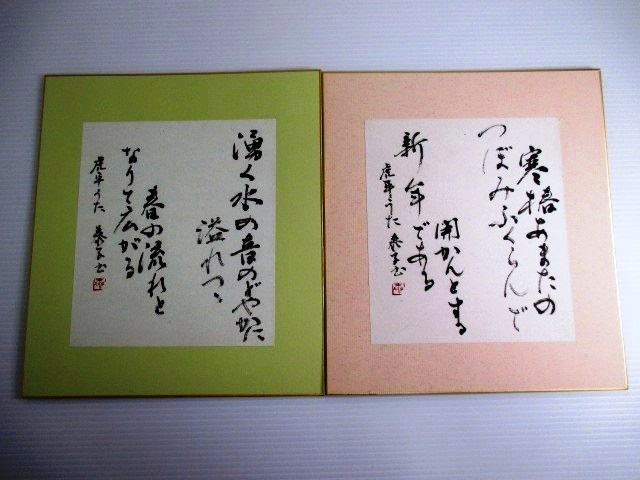 寒椿あまたの
つぼみふくらんで
開かんとする
新年である
虎年うた
湧く水の音のどやかに
溢れつゝ
春の流れと
なりて広がる
虎年うた